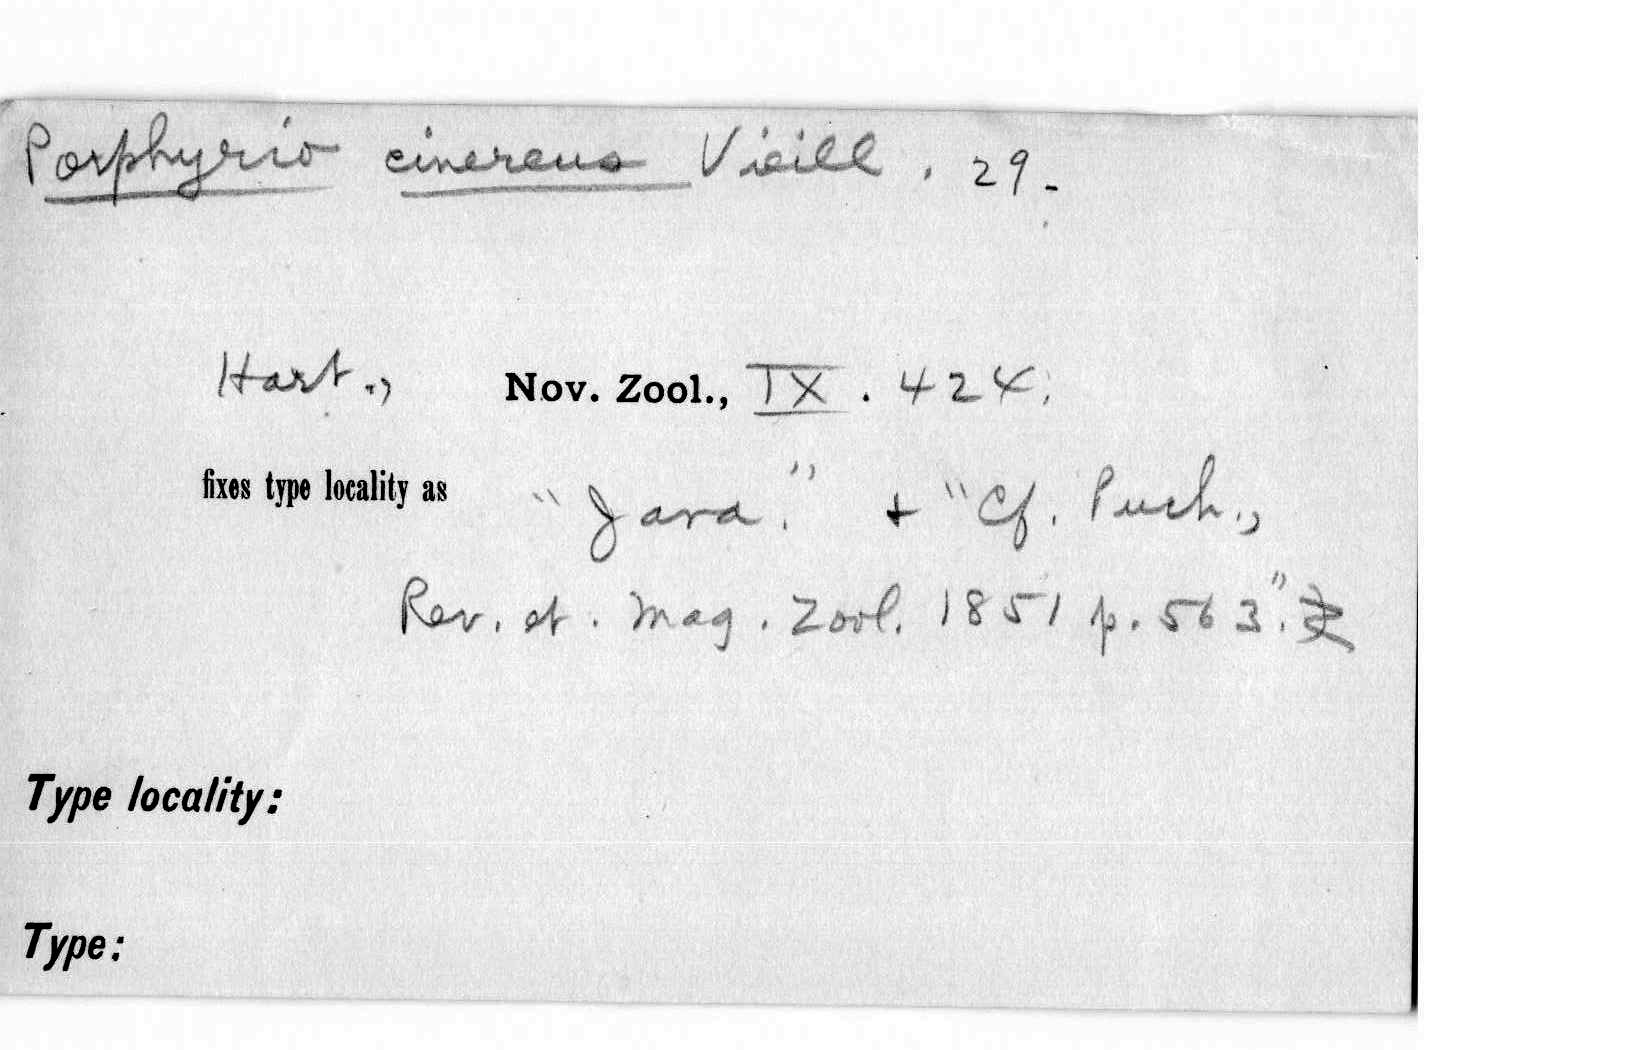 Porphyrio cinereus Vieill. 29-
Hart., Nov. Zool., IX. 424;
fixes type locality as "Java." + "Cf. Puch.,
Rev. et. Mag. Zool. 1851 p. 563".
Type locality:
Type: